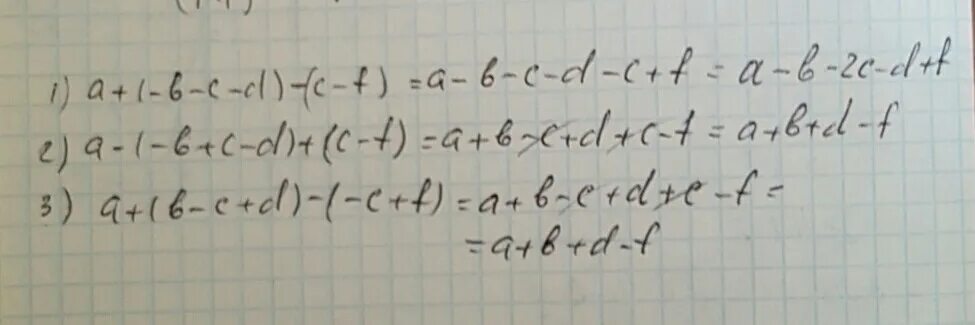 1) a+(-в-c-d)-(c-f)=a-в-c-d-c+f=a-в-2c-d+f
2) a-(-в+c-d)+(c-f)=a+в-c+d+c-f=a+в+d-f
3) a+(в-c+d)-(-c+f)=a+в-c+d+c-f=
=a+в+d-f